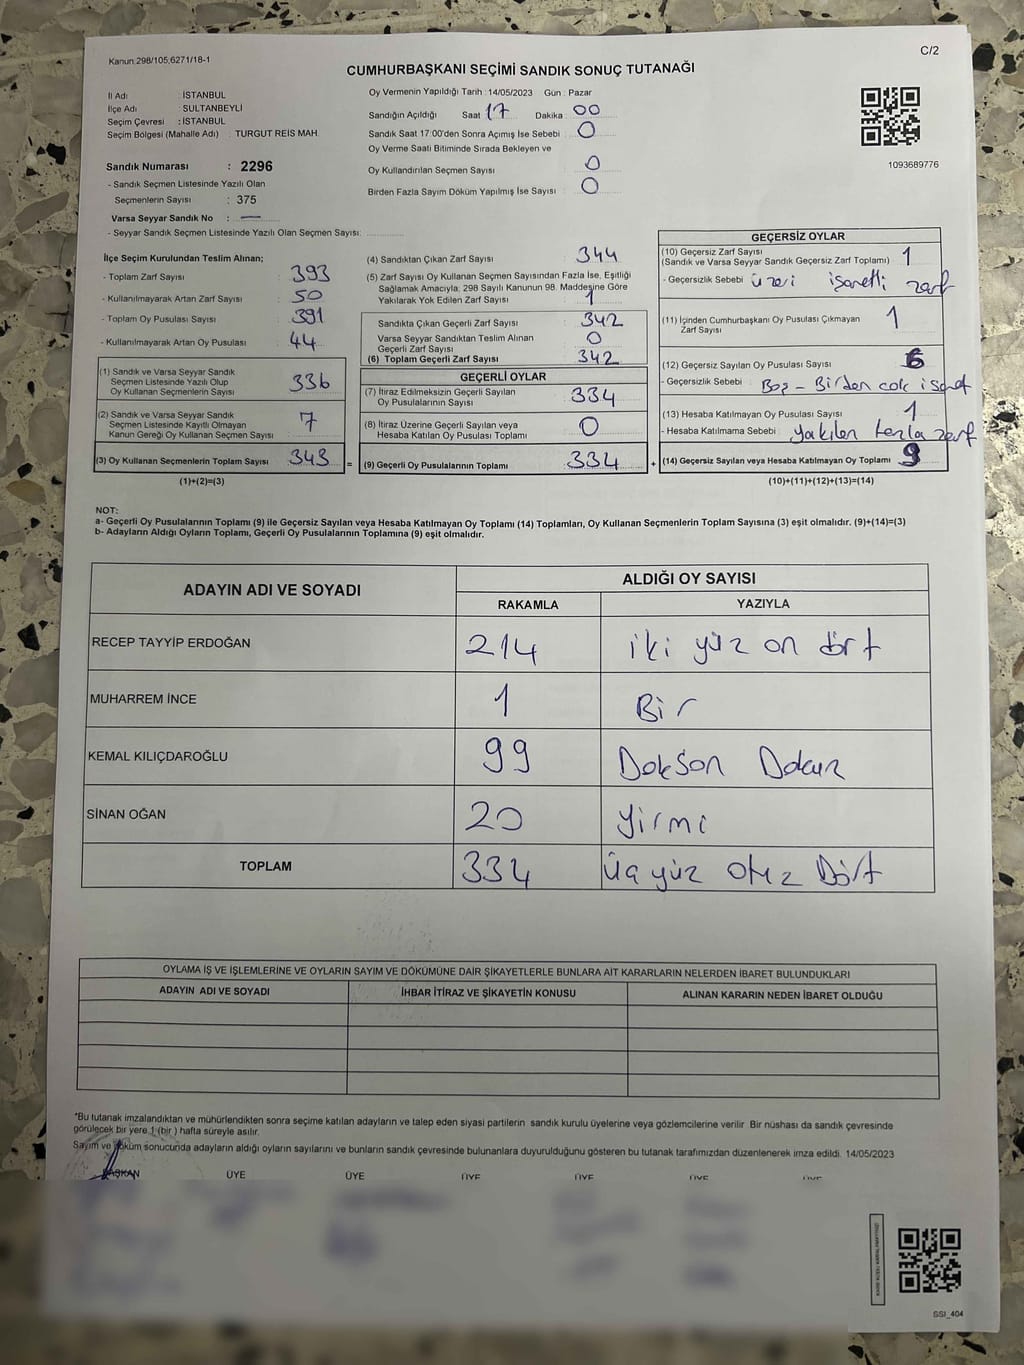 Kanun 298/105,6271/18-1
C/2
CUMHURBAŞKANI SEÇİMİ SANDIK SONUÇ TUTANAĞI
İl Adı: İSTANBUL
İlçe Adı : SULTANBEYLİ
Seçim Çevresi : İSTANBUL
Seçim Bölgesi (Mahalle Adı) : TURGUT REİS MAH.
Oy Vermenin Yapıldığı Tarih : 14/05/2023 Gün : Pazar
Sandığın Açıldığı Saat 17 Dakika 00
Sandık Saat 17:00'den Sonra Açımış İse Sebebi : 0
Oy Verme Saati Bitiminde Sırada Bekleyen ve
Oy Kullandırılan Seçmen Sayısı : 0
Birden Fazla Sayım Döküm Yapılmış İse Sayısı : 0
1093689776
Sandık Numarası : 2296
- Sandık Seçmen Listesinde Yazılı Olan
Seçmenlerin Sayısı : 375
Varsa Seyyar Sandık No : —
- Seyyar Sandık Seçmen Listesinde Yazılı Olan Seçmen Sayısı:
İlçe Seçim Kurulundan Teslim Alınan;
- Toplam Zarf Sayısı : 393
- Kullanılmayarak Artan Zarf Sayısı : 50
- Toplam Oy Pusulası Sayısı : 391
- Kullanılmayarak Artan Oy Pusulası : 44
(1) Sandık ve Varsa Seyyar Sandık
Seçmen Listesinde Yazılı Olup
Oy Kullanan Seçmenlerin Sayısı : 336
(2) Sandık ve Varsa Seyyar Sandık
Seçmen Listesinde Kayıtlı Olmayan
Kanun Gereği Oy Kullanan Seçmen Sayısı : 7
(3) Oy Kullanan Seçmenlerin Toplam Sayısı : 343
(1)+(2)=(3)
(4) Sandıktan Çıkan Zarf Sayısı : 344
(5) Zarf Sayısı Oy Kullanan Seçmen Sayısından Fazla İse, Eşitliği
Sağlamak Amacıyla; 298 Sayılı Kanunun 98. Maddesine Göre
Yakılarak Yok Edilen Zarf Sayısı : 1
Sandıkta Çıkan Geçerli Zarf Sayısı : 342
Varsa Seyyar Sandıktan Teslim Alınan
Geçerli Zarf Sayısı : 0
(6) Toplam Geçerli Zarf Sayısı : 342
GEÇERLİ OYLAR
(7) İtiraz Edilmeksizin Geçerli Sayılan
Oy Pusulalarının Sayısı : 334
(8) İtiraz Üzerine Geçerli Sayılan veya
Hesaba Katılan Oy Pusulaları Toplamı : 0
= (9) Geçerli Oy Pusulalarının Toplamı : 334 +
GEÇERSİZ OYLAR
(10) Geçersiz Zarf Sayısı
(Sandık ve Varsa Seyyar Sandık Geçersiz Zarf Toplamı) : 1
- Geçersizlik Sebebi : üzeri işaretli zarf
(11) İçinden Cumhurbaşkanı Oy Pusulası Çıkmayan
Zarf Sayısı : 1
(12) Geçersiz Sayılan Oy Pusulası Sayısı : 6
- Geçersizlik Sebebi : Boş - Birden cok işaret
(13) Hesaba Katılmayan Oy Pusulası Sayısı : 1
- Hesaba Katılmama Sebebi : yakılan fazla zarf
(14) Geçersiz Sayılan veya Hesaba Katılmayan Oy Toplamı : 9
(10)+(11)+(12)+(13)=(14)
NOT:
a- Geçerli Oy Pusulalarının Toplamı (9) ile Geçersiz Sayılan veya Hesaba Katılmayan Oy Toplamı (14) Toplamları, Oy Kullanan Seçmenlerin Toplam Sayısına (3) eşit olmalıdır. (9)+(14)=(3)
b- Adayların Aldığı Oyların Toplamı, Geçerli Oy Pusulalarının Toplamına (9) eşit olmalıdır.
ADAYIN ADI VE SOYADI
ALDIĞI OY SAYISI
RAKAMLA YAZIYLA
RECEP TAYYİP ERDOĞAN 214 iki yüz on dört
MUHARREM İNCE 1 Bir
KEMAL KILIÇDAROĞLU 99 Dokson Dokuz
SİNAN OĞAN 20 yirmi
TOPLAM 334 üç yüz otuz Dört
OYLAMA İŞ VE İŞLEMLERİNE VE OYLARIN SAYIM VE DÖKÜMÜNE DAİR ŞİKAYETLERLE BUNLARA AİT KARARLARIN NELERDEN İBARET BULUNDUKLARI
ADAYIN ADI VE SOYADI İHBAR İTİRAZ VE ŞİKAYETİN KONUSU ALINAN KARARIN NEDEN İBARET OLDUĞU
*Bu tutanak imzalandıktan ve mühürlendikten sonra seçime katılan adayların ve talep eden siyasi partilerin sandık kurulu üyelerine veya gözlemcilerine verilir Bir nüshası da sandık çevresinde
görülecek bir yere 1 (bir ) hafta süreyle asılır.
Sayım ve döküm sonucunda adayların aldığı oyların sayılarını ve bunların sandık çevresinde bulunanlara duyurulduğunu gösteren bu tutanak tarafımızdan düzenlenerek imza edildi. 14/05/2023
BAŞKAN ÜYE ÜYE ÜYE ÜYE ÜYE ÜYE
SSI_404